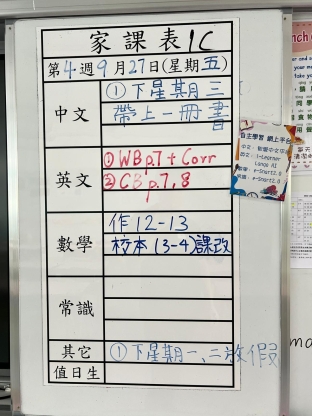 家課表 1C
第4週9月27日(星期五)
中文
①下星期三
帶上一冊書
英文
①WB p.7 + Corr
②CB p.7,8
數學
作12-13
校本(3-4)課改
常識
其它
①下星期一、二放假
值日生
自主學習 網上平台